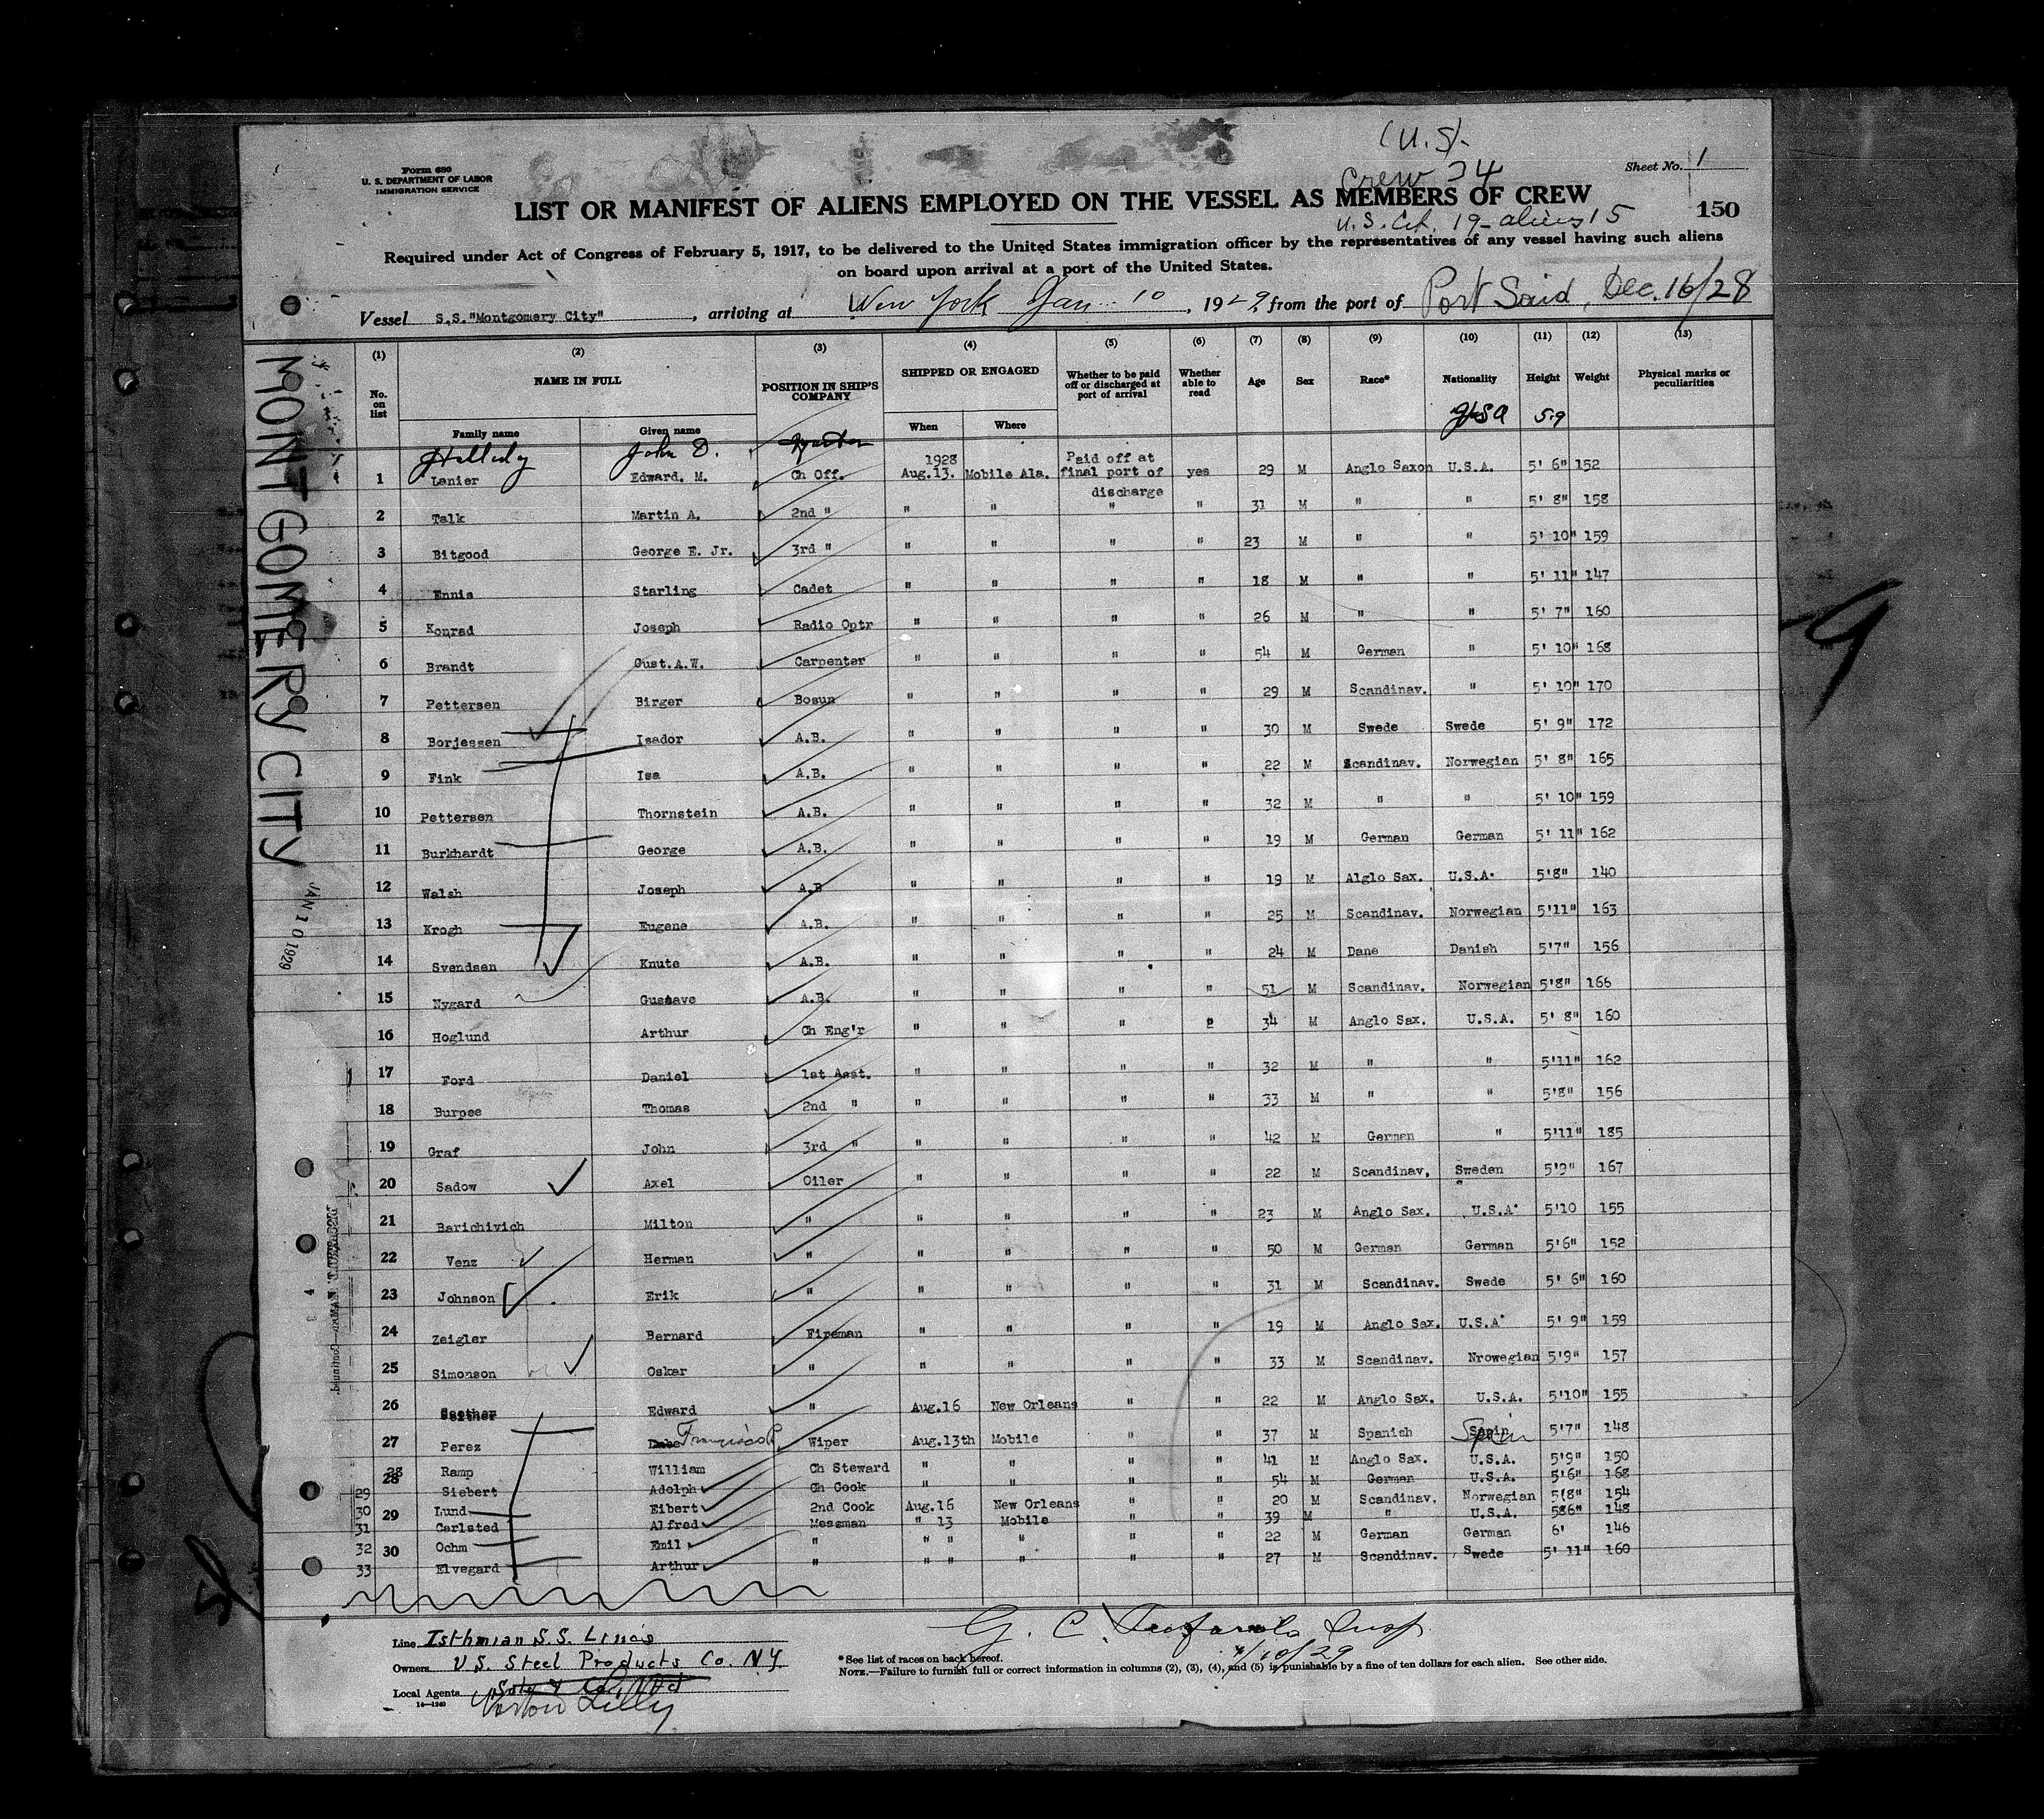 (U.S).
Crew 34
Form 680
U. S. DEPARTMENT OF LABOR
IMMIGRATION SERVICE
Sheet No. 1
LIST OR MANIFEST OF ALIENS EMPLOYED ON THE VESSEL AS MEMBERS OF CREW
150
U.S. Cit. 19 - aliens 15
Required under Act of Congress of February 5, 1917, to be delivered to the United States immigration officer by the representatives of any vessel having such aliens
on board upon arrival at a port of the United States.
Vessel S.S."Montgomery City", arriving at New York Jan 10, 1929, from the port of Port Said, Dec. 16/28
(1) (2) (3) (4) (5) (6) (7) (8) (9) (10) (11) (12) (13)
No. on list NAME IN FULL POSITION IN SHIP'S COMPANY SHIPPED OR ENGAGED Whether to be paid off or discharged at port of arrival Whether able to read Age Sex Race* Nationality Height Weight Physical marks or peculiarities
Family name Given name When Where
Halliday John D. USA 5-9
1 Lanier Edward. M. Ch Off. 1928 Aug.13. Mobile Ala. Paid off at final port of discharge yes 29 M Anglo Saxon U.S.A. 5' 6" 152
2 Talk Martin A. 2nd " " " " " 31 M " " 5' 8" 158
3 Bitgood George E. Jr. 3rd " " " " " 23 M " " 5' 10" 159
4 Ennis Starling Cadet " " " " 18 M " " 5' 11" 147
5 Konrad Joseph Radio Optr " " " " 26 M " " 5' 7" 160
6 Brandt Gust.A.W. Carpenter " " " " 54 M German " 5' 10" 168
7 Pettersen Birger Bosun " " " " 29 M Scandinav. " 5' 10" 170
8 Borjessen Isador A.B. " " " " 30 M Swede Swede 5' 9" 172
9 Fink Isa A.B. " " " " 22 M Scandinav. Norwegian 5' 8" 165
10 Pettersen Thornstein A.B. " " " " 32 M " " 5' 10" 159
11 Burkhardt George A.B. " " " " 19 M German German 5' 11" 162
12 Walsh Joseph A.B " " " " 19 M Alglo Sax. U.S.A. 5'8" 140
13 Krogh Eugene A.B. " " " " 25 M Scandinav. Norwegian 5'11" 163
14 Svendsen Knute A.B. " " " " 24 M Dane Danish 5'7" 156
15 Nygard Gustave A.B. " " " " 51 M Scandinav. Norwegian 5'8" 166
16 Hoglund Arthur Ch Eng'r " " " 34 M Anglo Sax. U.S.A. 5' 8" 160
17 Ford Daniel 1st Asst. " " " " 32 M " " 5'11" 162
18 Burpee Thomas 2nd " " " " " 33 M " " 5'8" 156
19 Graf John 3rd " " " " " 42 M German " 5'11" 185
20 Sadow Axel Oiler " " " " 22 M Scandinav. Sweden 5'9" 167
21 Barichivich Milton " " " " " 23 M Anglo Sax. U.S.A. 5'10 155
22 Venz Herman " " " " " 50 M German German 5'6" 152
23 Johnson Erik " " " " " 31 M Scandinav. Swede 5' 6" 160
24 Zeigler Bernard Fireman " " " " 19 M Anglo Sax. U.S.A. 5' 9" 159
25 Simonson Oskar " " " " " 33 M Scandinav. Nrowegian 5'9" 157
26 Edward " Aug.16 New Orleans " " 22 M Anglo Sax. U.S.A. 5'10" 155
27 Perez Francisco P. Wiper Aug.13th Mobile " " 37 M Spanish Spain 5'7" 148
28 Ramp William Ch Steward " " " " 41 M Anglo Sax. U.S.A. 5'9" 150
29 Siebert Adolph Ch Cook " " " " 54 M German U.S.A. 5'6" 168
30 Lund Eibert 2nd Cook Aug.16 New Orleans " " 20 M Scandinav. Norwegian 5'8" 154
31 Carlsted Alfred Messman " 13 Mobile " " 39 M " U.S.A. 586" 148
32 Ochm Emil " " " " " " 22 M German German 6' 146
33 Elvegard Arthur " " " " " " 27 M Scandinav. Swede 5' 11" 160
MONTGOMERY CITY
JAN 10 1929
Line Isthmian S.S. Lines
Owners U.S. Steel Products Co. N.Y.
Local Agents Norton Lilly
14—1240
1/10/29
* See list of races on back hereof.
NOTE.—Failure to furnish full or correct information in columns (2), (3), (4), and (5) is punishable by a fine of ten dollars for each alien. See other side.